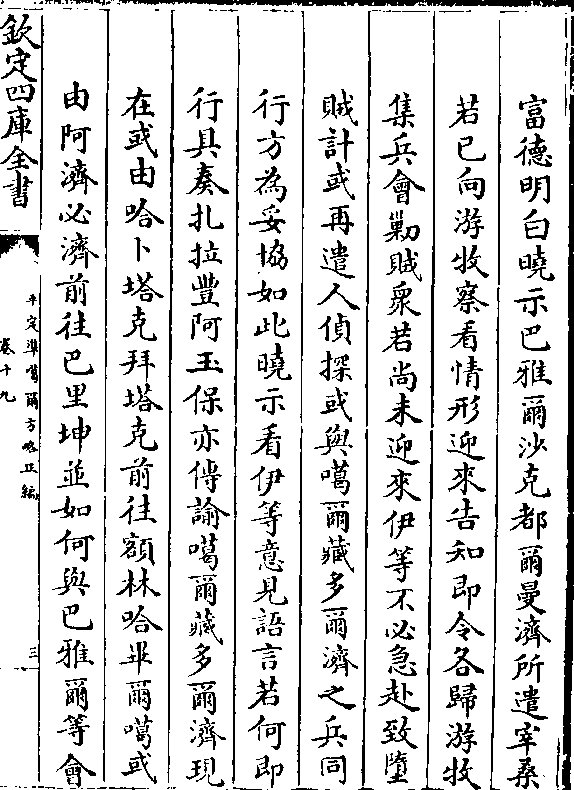 富德明白曉示巴雅爾沙克都爾曼濟所遣宰桑
若已向游牧察看情形迎來告知即令各歸游牧
集兵會勦賊衆若尚未迎來伊等不必急赴致墮
賊計或再遣人偵探或與噶爾藏多爾濟之兵同
行方為妥協如此曉示看伊等意見語言若何即
行具奏扎拉豐阿玉保亦傳諭噶爾藏多爾濟現
在或由哈卜塔克拜塔克前往額林哈畢爾噶或
由阿濟必濟前往巴里坤並如何與巴雅爾等會
欽定四庫全書
平定準噶爾方略正編
卷十九
三